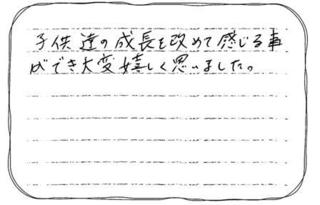 子供達の成長を改めて感じる事
ができ大変嬉しく思いました。